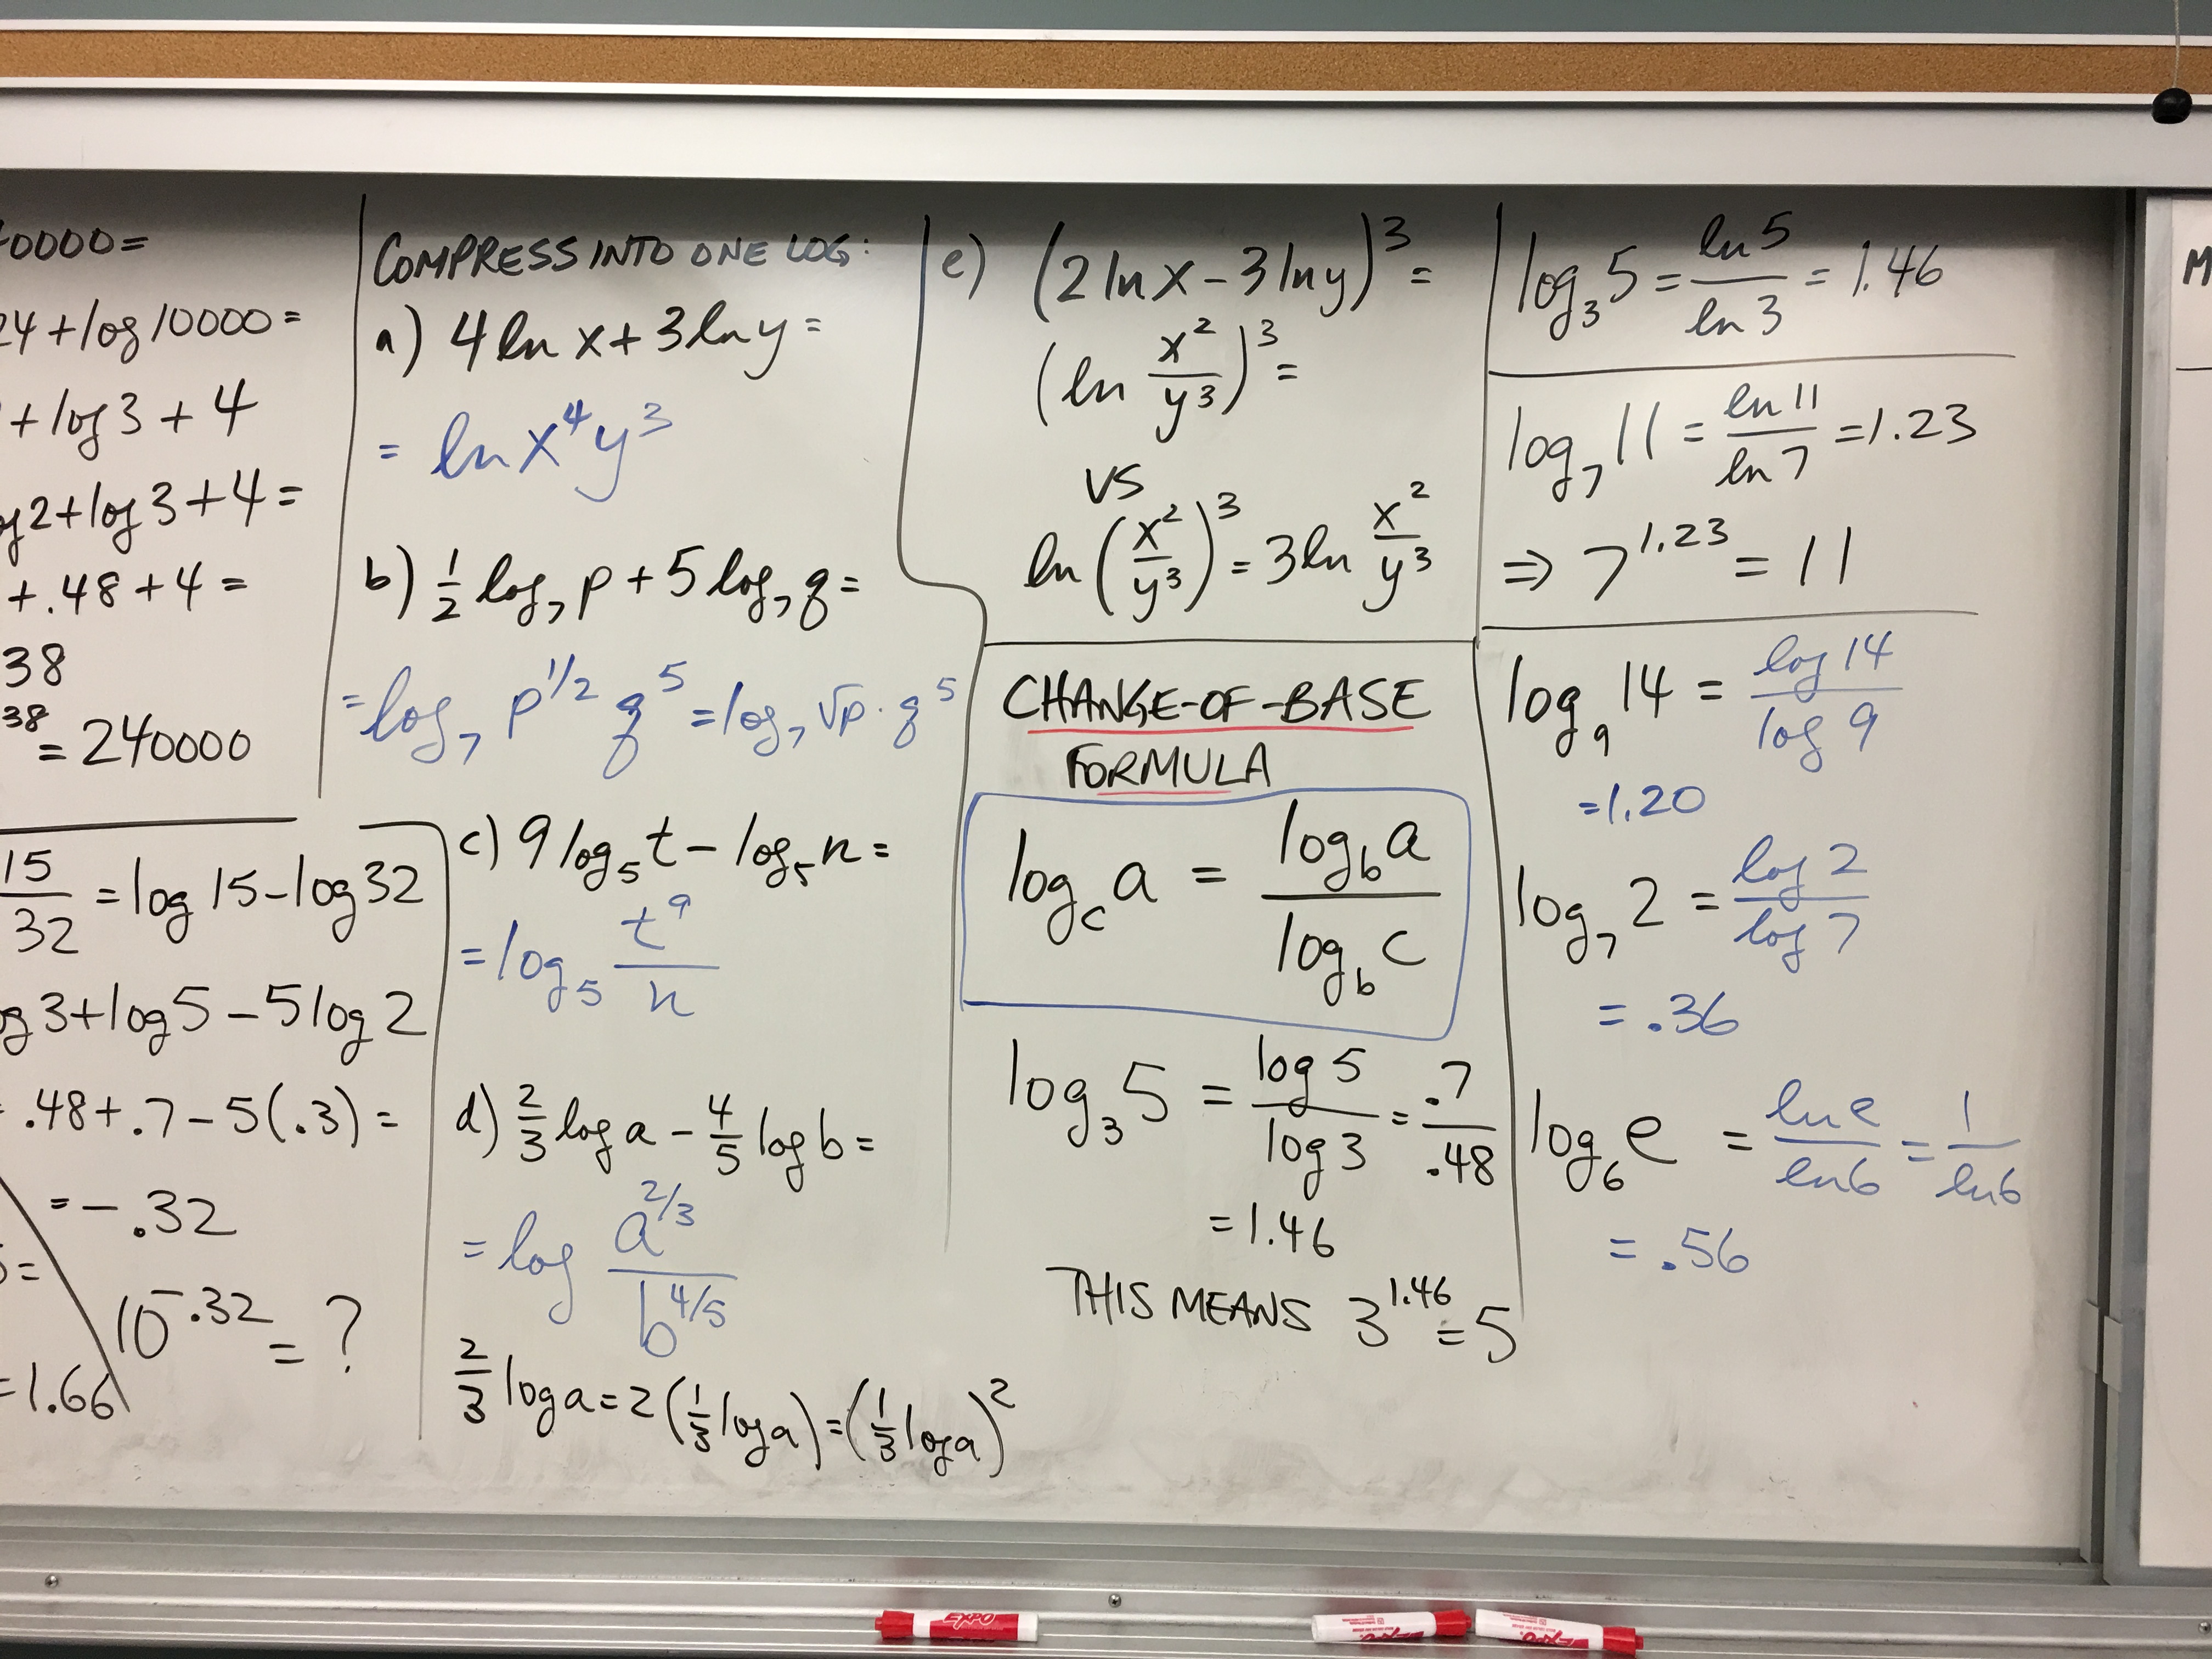 0000=
24+log10000=
+log3+4
og2+log3+4=
+.48+4=
38
38 = 240000
15/32 = log15-log32
og3+log5-5log2
.48+.7-5(.3)=
=-.32
10^-.32 = ?
=1.66
COMPRESS INTO ONE LOG:
a) 4lnx+3lny=
= lnx⁴y³
b) 1/2 log₇p+5log₇q=
=log₇ p^1/2 q⁵ = log₇√p·q⁵
c) 9log₅t-log₅n=
=log₅ t⁹/n
d) 2/3 loga - 4/5 logb=
= log a^2/3 / b^4/5
2/3 loga=2(1/3 loga)=(1/3 loga)²
e) (2lnx-3lny)³=
(ln x²/y³)³=
VS
ln(x²/y³)³=3ln x²/y³
CHANGE-OF-BASE
FORMULA
log_c a = log_b a / log_b c
log₃5 = log5/log3 = .7/.48
=1.46
THIS MEANS 3^1.46=5
log₃5= ln5/ln3 =1.46
log₇11= ln11/ln7 =1.23
⇒ 7^1.23 = 11
log₉14 = log14/log9
=1.20
log₇2 = log2/log7
= .36
log₆e = lne/ln6 = 1/ln6
= .56
M
EXPO
EXPO
EXPO